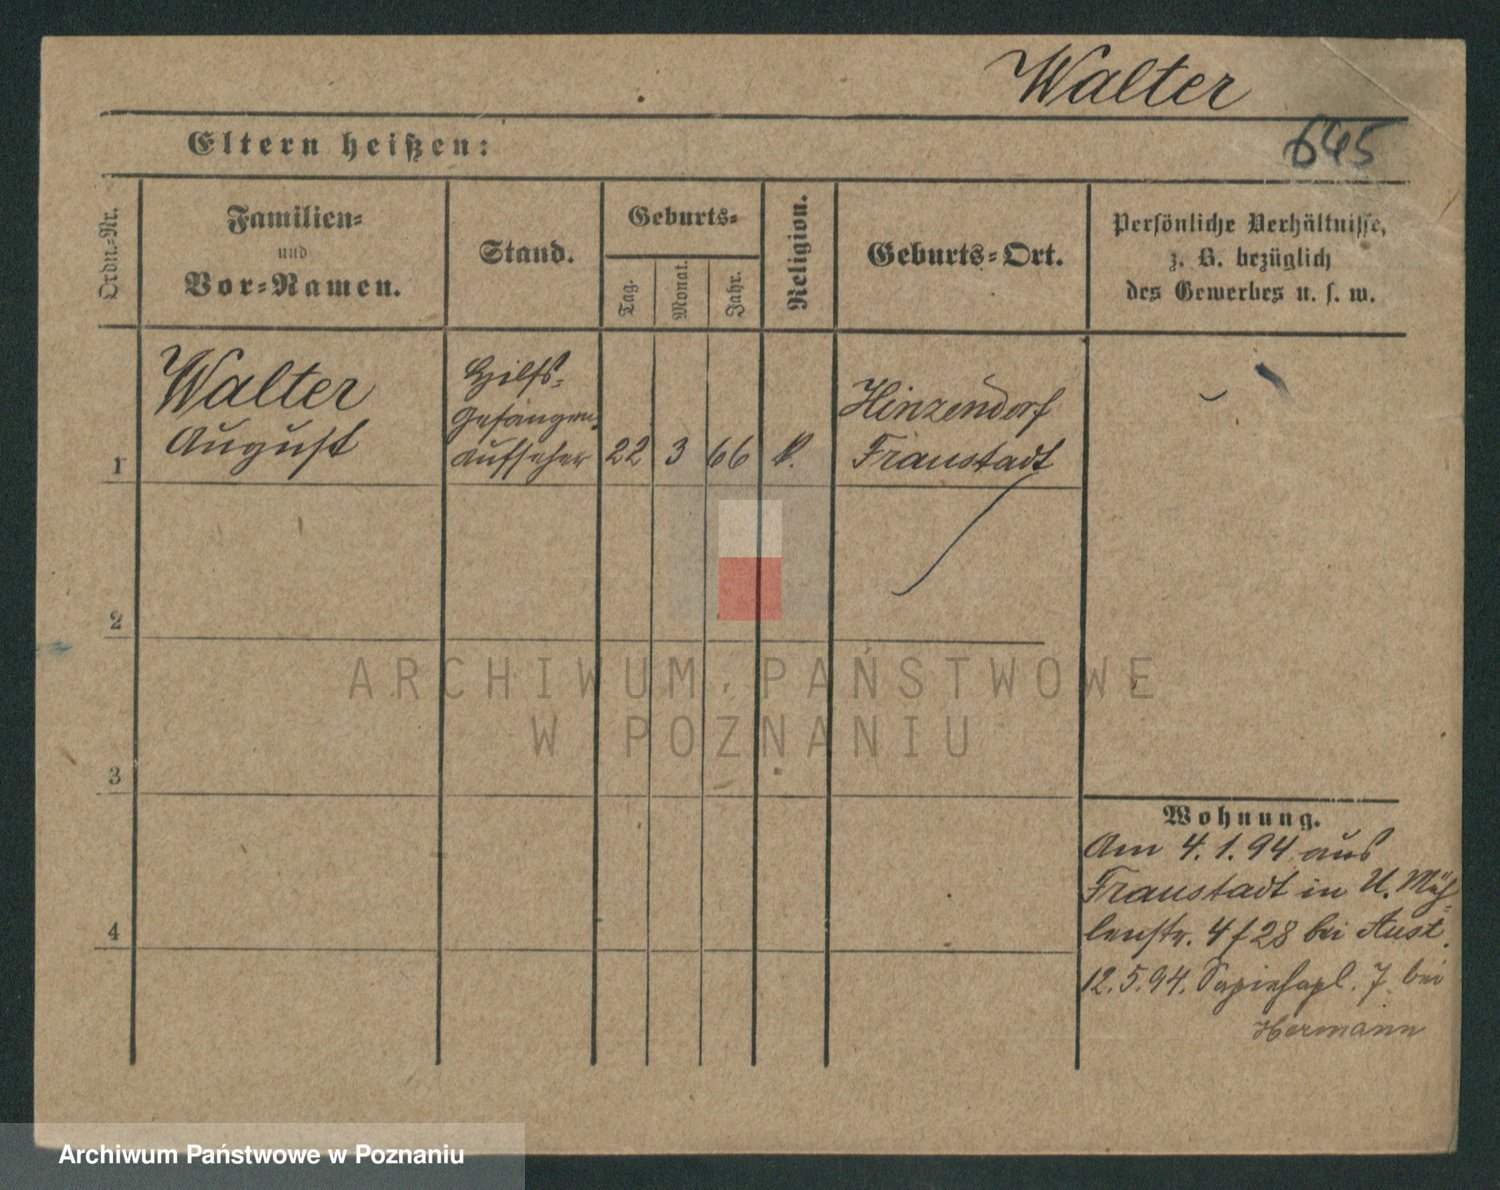 Walter
645
Eltern heißen:
Ordn.-Nr.
Familien-
und
Vor-Namen.
Stand.
Geburts-
Tag.
Monat.
Jahr.
Religion.
Geburts-Ort.
Persönliche Verhältnisse,
z. B. bezüglich
des Gewerbes u. s. w.
1
Walter
August
Hilfs-
Gefangen-
aufseher
22
3
66
k.
Hinzendorf
Fraustadt
2
3
4
Wohnung.
Am 4.1.94 aus
Fraustadt in U. Müh-
lenstr. 4/28 bei Aust.
12.5.94. Sapiehapl. 7. bei
Hermann
ARCHIWUM PAŃSTWOWE
W POZNANIU
Archiwum Państwowe w Poznaniu